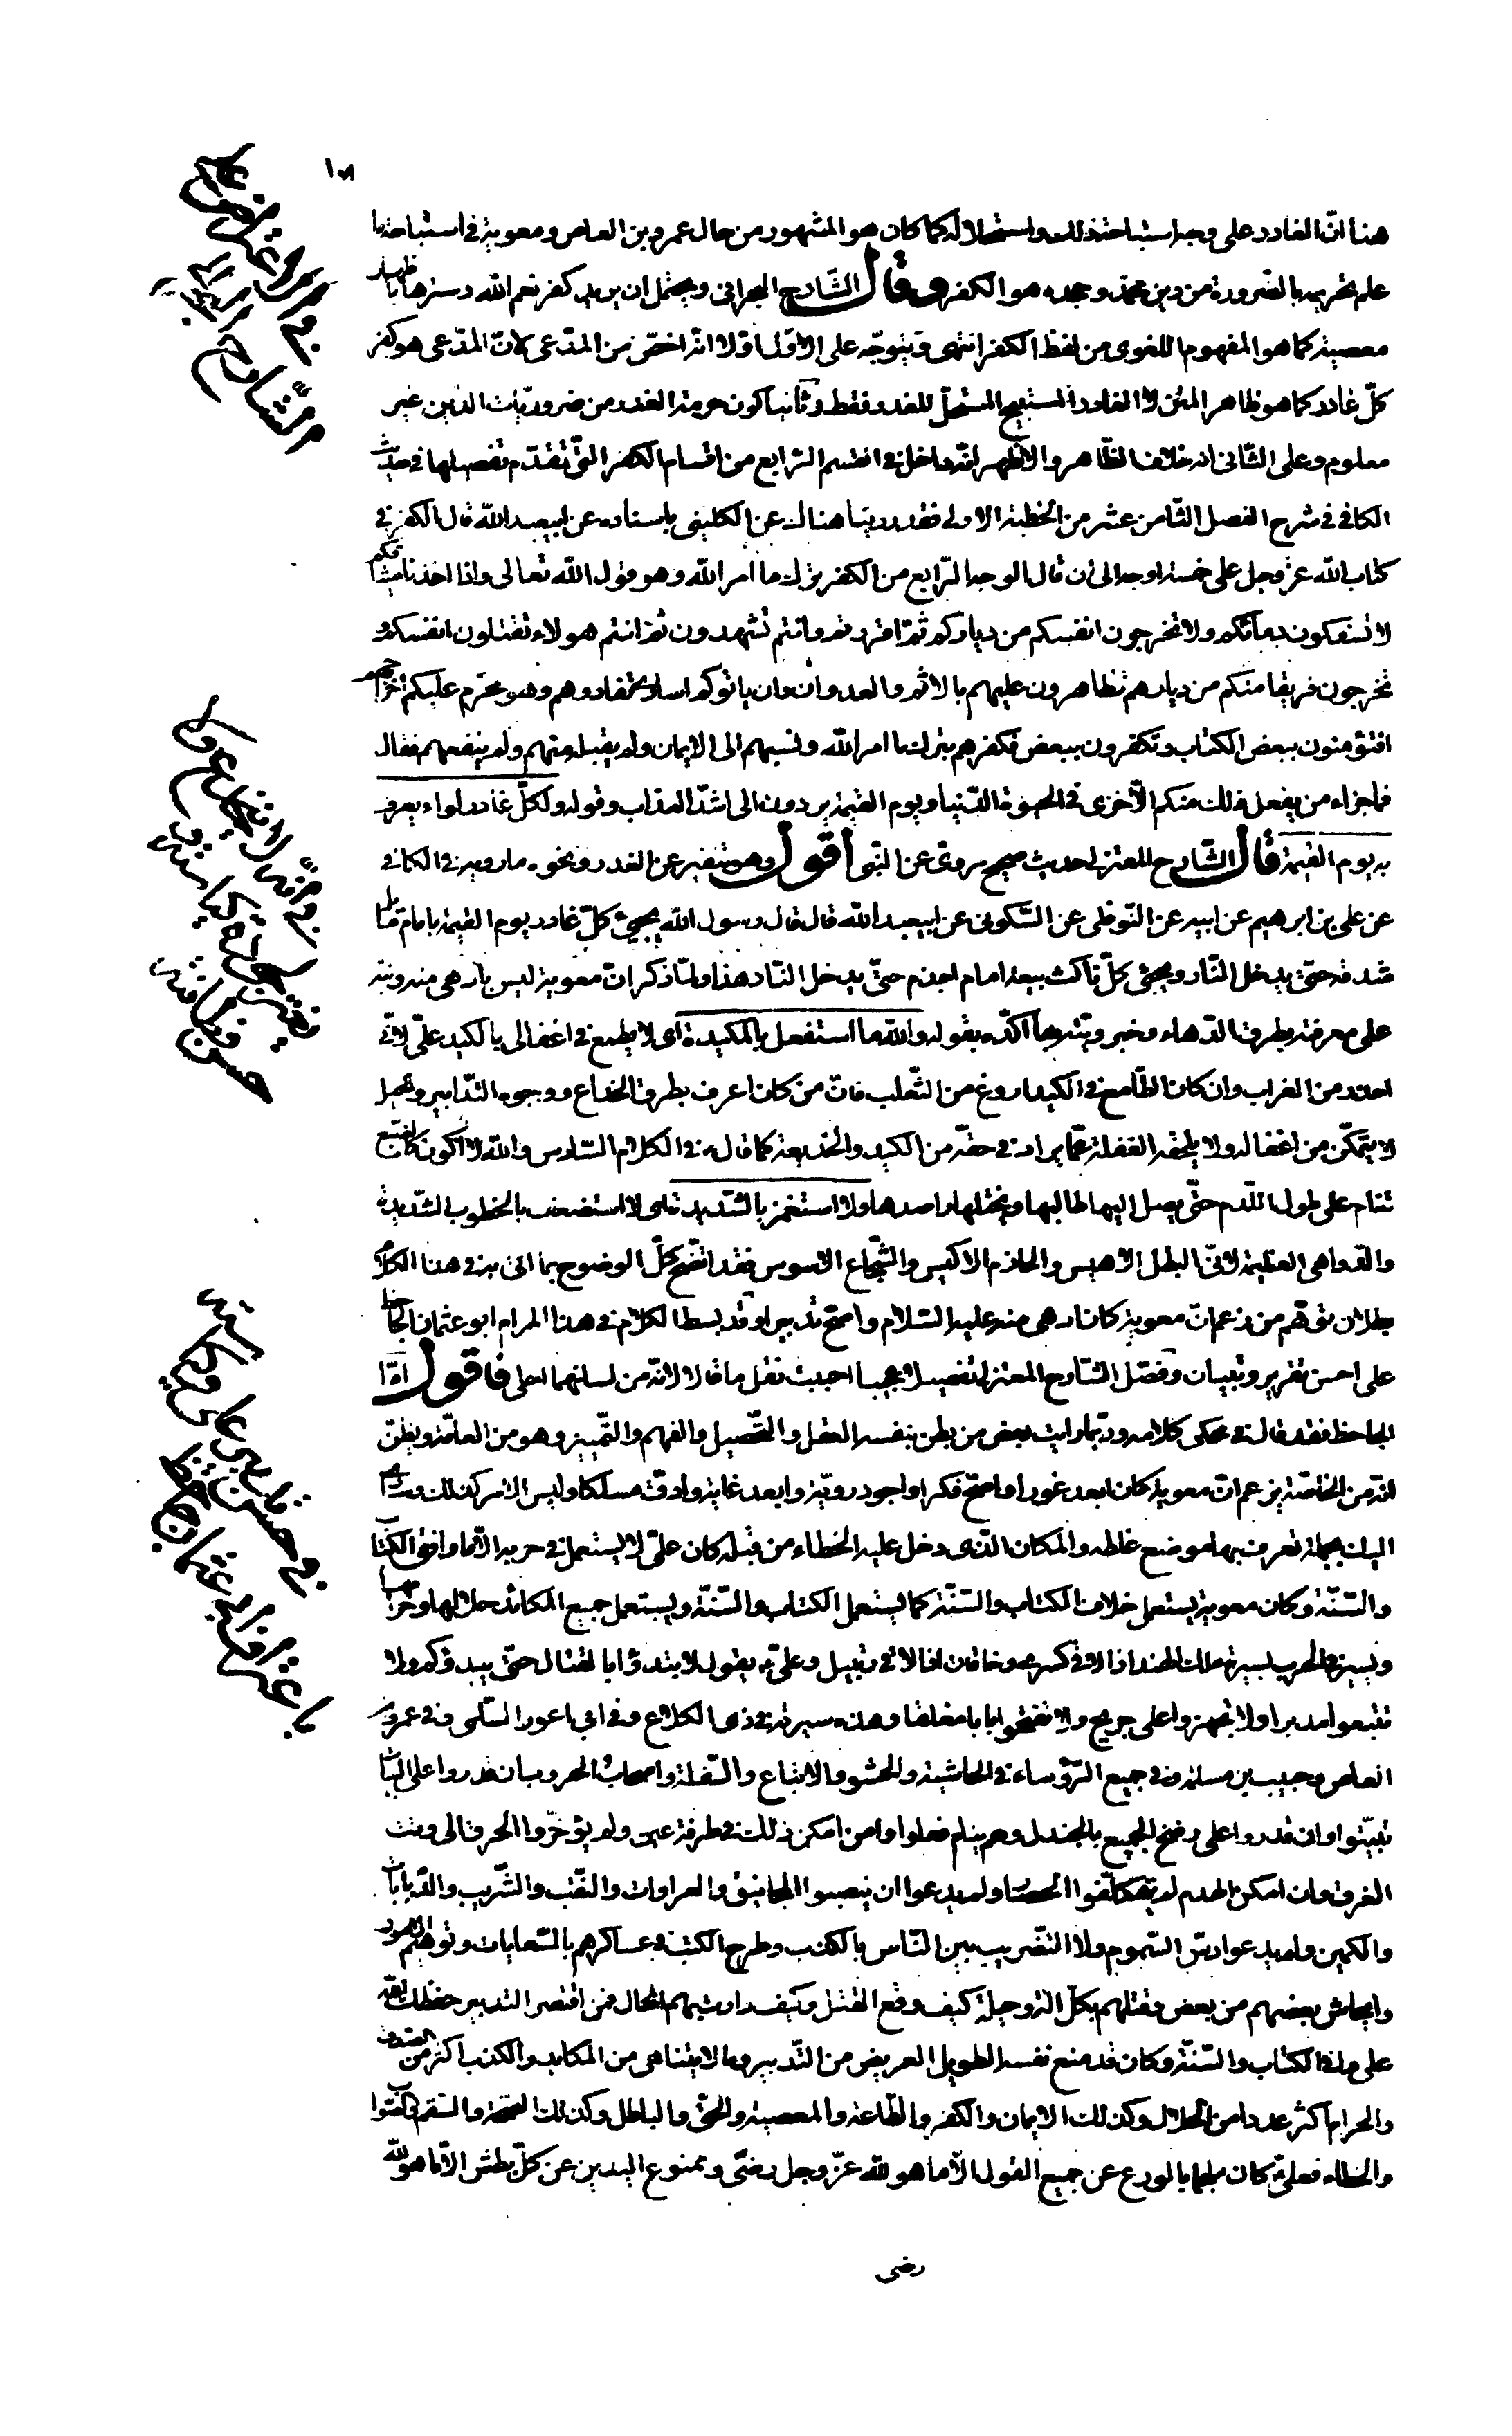 هنا انّ الغادر على وجه استباحة ذلك واستحلاله كما كان هو المشهور من حال عمرو بن العاص ومعوية في استباحة ما
علم تحريمه بالضرورة من دين محمّد وجحده هو الكفر وقال الشّارح البحراني ويحتمل ان يريد كفر نعم الله وسترها باظهار
معصيته كما هو المفهوم اللغوى من لفظ الكفر انتهى ويتوجّه على الاوّل اوّلا انّه اخصّ من المدّعى لانّ المدّعى هو كفر
كلّ غادر كما هو ظاهر المتن لا الغادر المستبيح المستحلّ للغدر فقط وثانيا كون حرمة الغدر من ضروريّات الدّين غير
معلوم وعلى الثّانى انه خلاف الظّاهر والاظهر انّه داخل في القسم الرّابع من اقسام الكفر التى تقدّم تفصيلها في حديث
الكافى في شرح الفصل الثّامن عشر من الخطبة الاولى فقد روينا هناك عن الكلينى باسناده عن ابيعبد الله قال الكفر في
كتاب الله عزّ وجل على خمسة اوجه الى ان قال الوجه الرّابع من الكفر ترك ما امر الله وهو قول الله تعالى واذا اخذنا ميثاقكم
لا تسفكون دمائكم ولا تخرجون انفسكم من دياركم ثمّ اقررتم وانتم تشهدون ثم انتم هولاء تقتلون انفسكم و
تخرجون فريقا منكم من ديارهم تظاهرون عليهم بالاثم والعدوان وان ياتوكم اسارى تفادوهم وهو محرّم عليكم اخراجهم
افتؤمنون ببعض الكتاب وتكفرون ببعض فكفرهم بترك ما امر الله ونسبهم الى الايمان ولم يقبله منهم ولم ينفعهم فقال
فما جزاء من يفعل ذلك منكم الّا خزى في الحيوة الدّنيا ويوم القيمة يردون الى اشدّ العذاب وقوله ولكلّ غادر لواء يعرف
به يوم القيمة قال الشّارح المعتزلى حديث صحيح مروىّ عن النّبى اقول وهو تنفير عن الغدر ونحوه ما رويه في الكافى
عن على بن ابرهيم عن ابيه عن النّوفلى عن السّكونى عن ابيعبد الله قال قال رسول الله يجيئ كلّ غادر يوم القيمة بامام مائل
شدقه حتّى يدخل النّار ويجيئ كلّ ناكث بيعة امام اجذم حتّى يدخل النّار هذا ولمّا ذكر انّ معوية ليس بادهى منه ونبّه
على معرفته بطرق الدّهاء وخبرويّته بها اكّده بقوله والله ما استغفل بالمكيدة اى لا يطمع في اغفالى بالكيد علىّ لانّى
احذر من الغراب وان كان الطّامع في الكيد اروغ من الثّعلب فانّ من كان اعرف بطرق الخداع ووجوه التّدابير والحيل
لا يتمكّن من اغفاله ولا يلحقه الغفلة عمّا يراد في حقّه من الكيد والخديعة كما قال في الكلام السّادس والله لا اكون كالضّبع
تنام على طول اللّدم حتّى يصل اليها طالبها ويختلها راصدها ولا استغمز بالشّديدة اى لا استضعف بالخطوب الشّديدة
والدّواهى العظيمة لانّى البطل الاهيس والحازم الاكيس والشّجاع الاسوس فقد اتّضح كلّ الوضوح بما اتى به في هذا الكلام
بطلان توهّم من زعم انّ معوية كان ادهى منه عليه السّلام واصحّ تدبيرا وقد بسط الكلام في هذا المرام ابو عثمان الجاحظ
على احسن تقرير وتبيان وفصّل الشّارح المعتزلى تفصيلا عجيبا احببت نقل ما قالا لانّه من لسانهما احلى فاقول امّا
الجاحظ فقد قال في محكى كلامه وربّما رايت بعض من يظن بنفسه العقل والتّحصيل والفهم والتّمييز وهو من العامّة ويظنّ
انّه من الخاصّة يزعم انّ معوية كان ابعد غورا واصحّ فكرا واجود رويّة وابعد غاية وادقّ مسلكا وليس الامر كذلك وسارمى
اليك بجملة تعرف بها موضع غلطه والمكان الّذى دخل عليه الخطاء من قبله كان علىّ لا يستعمل في حربه الّا ما وافق الكتاب
والسّنّة وكان معوية يستعمل خلاف الكتاب والسّنّة كما يستعمل الكتاب والسّنّة ويستعمل جميع المكائد حلالها وحرامها
ويسير في الحرب بسيرة ملك الهند اذا لاقى كسرى وخاقان اذا لاقى رتبيل وعلىّ يقول لا تبدؤا بالقتال حتّى يبدؤكم ولا
تتبعوا مدبرا ولا تجهزوا على جريح ولا تفتحوا بابا مغلقا وهذه سيرته في ذى الكلاع وفي ابي اعور السّلمى وفي عمرو بن
العاص وحبيب بن مسلمة وفي جميع الرّؤساء في الحاشية والحشو والاتباع والسّفلة واصحاب الحروب ان قدروا على البيات
تبيّتوا وان قدروا على رضخ الجميع بالجندل وهم نيام فعلوا وان امكن ذلك في طرفة عين ولم يؤخّروا الحرق الى وقت
الغرق وان امكن الهدم لم يتكلّفوا الحصار ولم يدعوا ان ينصبوا المجانيق والعرادات والنّقب والتّسريب والدّبابات
والكمين ولم يدعوا دسّ السّموم ولا التّضريب بين النّاس بالكذب وطرح الكتب في عساكرهم بالسّعايات وتوهيم الامور
وايحاش بعضهم من بعض وقتلهم بكلّ الة وحيلة كيف وقع القتل وكيف دارت بهم الحال فمن اقتصر التدبير حفظك الله
على ما في الكتاب والسّنّة وكان قد منع نفسه الطويل العريض من التّدبير وما لا يتناهى من المكايد والكذب اكثر من الصّدق
والحرام اكثر عددا من الحلال وكذلك الايمان والكفر والطّاعة والمعصية والحقّ والباطل وكذلك الصّحة والسّقم والصّواب
والخطاء فعلىّ كان ملجما بالورع عن جميع القول الّا ما هو لله عزّ وجل رضى وممنوع اليدين عن كلّ بطش الّا ما هو لله
رضى